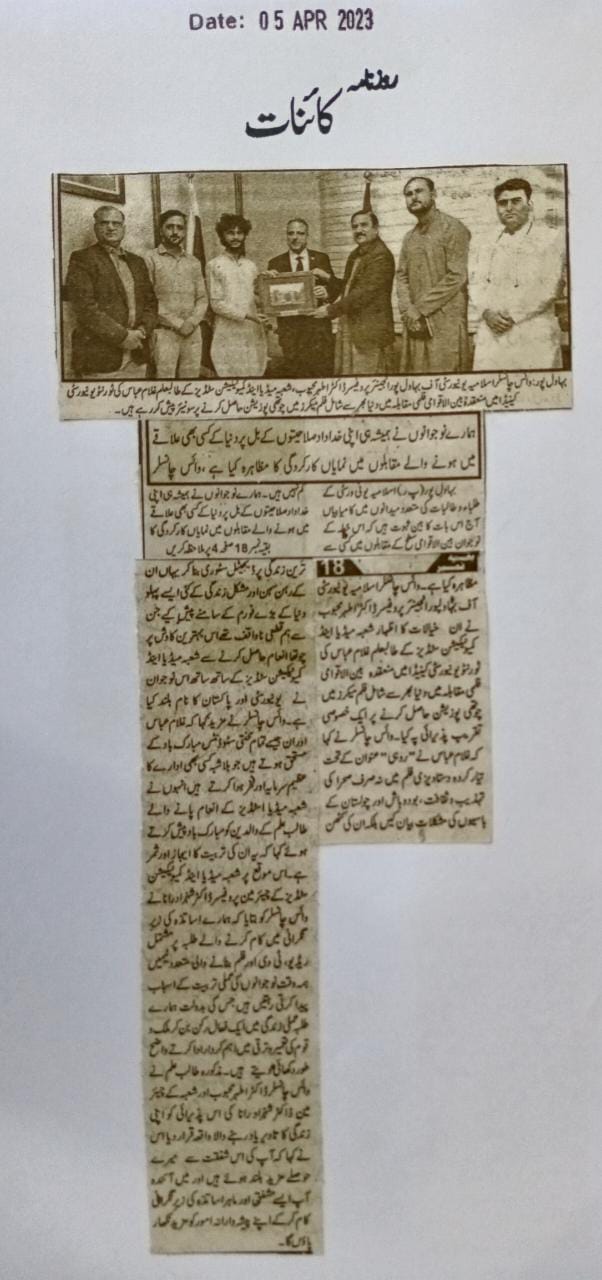 Date: 05 APR 2023
روزنامہ
کائنات
بہاول پور: وائس چانسلر اسلامیہ یونیورسٹی آف بہاول پور انجینئر پروفیسر ڈاکٹر اطہر محبوب، شعبہ میڈیا اینڈ کمیونیکیشن سٹڈیز کے طالبعلم غلام عباس کی ٹورنٹو یونیورسٹی
کینیڈا میں منعقدہ بین الاقوامی فلمی مقابلہ میں دنیا بھر سے شامل فلم میکرز میں چوتھی پوزیشن حاصل کرنے پر سوینئر پیش کر رہے ہیں۔
ہمارے نوجوانوں نے ہمیشہ ہی اپنی خداداد صلاحیتوں کے بل پر دنیا کے کسی بھی علاقے
میں ہونے والے مقابلوں میں نمایاں کارکردگی کا مظاہرہ کیا ہے، وائس چانسلر
بہاول پور (پ ر) اسلامیہ یونیورسٹی کے
طلباء و طالبات کی متعدد میدانوں میں کامیابیاں
آج اس بات کا بین ثبوت ہیں کہ اس خطہ کے
نوجوان بین الاقوامی سطح کے مقابلوں میں کسی سے
کم نہیں ہیں۔ ہمارے نوجوانوں نے ہمیشہ ہی اپنی
خداداد صلاحیتوں کے بل پر دنیا کے کسی بھی علاقے
میں ہونے والے مقابلوں میں نمایاں کارکردگی کا
بقیہ نمبر 18 صفحہ 4 پر ملاحظہ کریں
بقیہ نمبر 18
مظاہرہ کیا ہے۔ وائس چانسلر اسلامیہ یونیورسٹی
آف بہاولپور انجینئر پروفیسر ڈاکٹر اطہر محبوب
نے ان خیالات کا اظہار شعبہ میڈیا اینڈ
کمیونیکیشن سٹڈیز کے طالبعلم غلام عباس کی
ٹورنٹو یونیورسٹی کینیڈا میں منعقدہ بین الاقوامی
فلمی مقابلہ میں دنیا بھر سے شامل فلم میکرز میں
چوتھی پوزیشن حاصل کرنے پر ایک خصوصی
تقریب پذیرائی پہ کیا۔ وائس چانسلر نے کہا
کہ غلام عباس نے "روہی" عنوان کے تحت
تیار کردہ دستاویزی فلم میں نہ صرف صحرا کی
تہذیب و ثقافت، بودوباش اور چولستان کے
باسیوں کی مشکلات بیان کیں بلکہ ان کی کٹھن
ترین زندگی پر ڈیجیٹل سٹوری بنا کر یہاں ان
کے رہن سہن اور مشکل زندگی کے کئی ایسے پہلو
دنیا کے بڑے فورم کے سامنے پیش کیے جن
سے ہم قطعی ناواقف تھے اس بہترین کاوش پر
چوتھا انعام حاصل کرنے سے شعبہ میڈیا اینڈ
کمیونیکیشن سٹڈیز کے ساتھ ساتھ اس نوجوان
نے یونیورسٹی اور پاکستان کا نام بلند کیا
ہے۔ وائس چانسلر نے مزید کہا کہ غلام عباس
اور ان جیسے تمام محنتی سٹوڈنٹس مبارک باد کے
مستحق ہوتے ہیں جو بلاشبہ کسی بھی ادارے کا
عظیم سرمایہ اور فخر ہوا کرتے ہیں انہوں نے
شعبہ میڈیا اسٹڈیز کے انعام پانے والے
طالب علم کے والدین کو مبارک باد پیش کرتے
ہوئے کہا کہ یہ ان کی تربیت کا اعجاز اور ثمر
ہے۔ اس موقع پر شعبہ میڈیا اینڈ کمیونیکیشن
سٹڈیز کے چیئرمین پروفیسر ڈاکٹر شہزاد رانا نے
وائس چانسلر کو بتایا کہ ہمارے اساتذہ کی زیر
نگرانی میں کام کرنے والے طلبہ پر مشتمل
ریڈیو، ٹی وی اور فلم بنانے والی متعدد ٹیمیں
ہمہ وقت نوجوانوں کی عملی تربیت کے اسباب
پیدا کرتی رہتیں ہیں جس کی بدولت ہمارے
طلبہ عملی زندگی میں ایک فعال رکن بن کر ملک و
قوم کی تعمیر و ترقی میں اہم کردار ادا کرتے واضح
طور دکھائی دیتے ہیں۔ مذکورہ طالب علم نے
وائس چانسلر ڈاکٹر اطہر محبوب اور شعبہ کے چیئر
مین ڈاکٹر شہزاد رانا کی اس پذیرائی کو اپنی
زندگی کا تادیر یاد رہنے والا واقعہ قرار دیا اس
نے کہا کہ آپ کی اس شفقت سے میرے
حوصلے مزید بلند ہوئے ہیں اور میں آئندہ
آپ ایسے مشفق اور ماہر اساتذہ کی زیر نگرانی
کام کر کے اپنے پیشہ وارانہ امور کو مزید نکھار
پاؤں گا۔